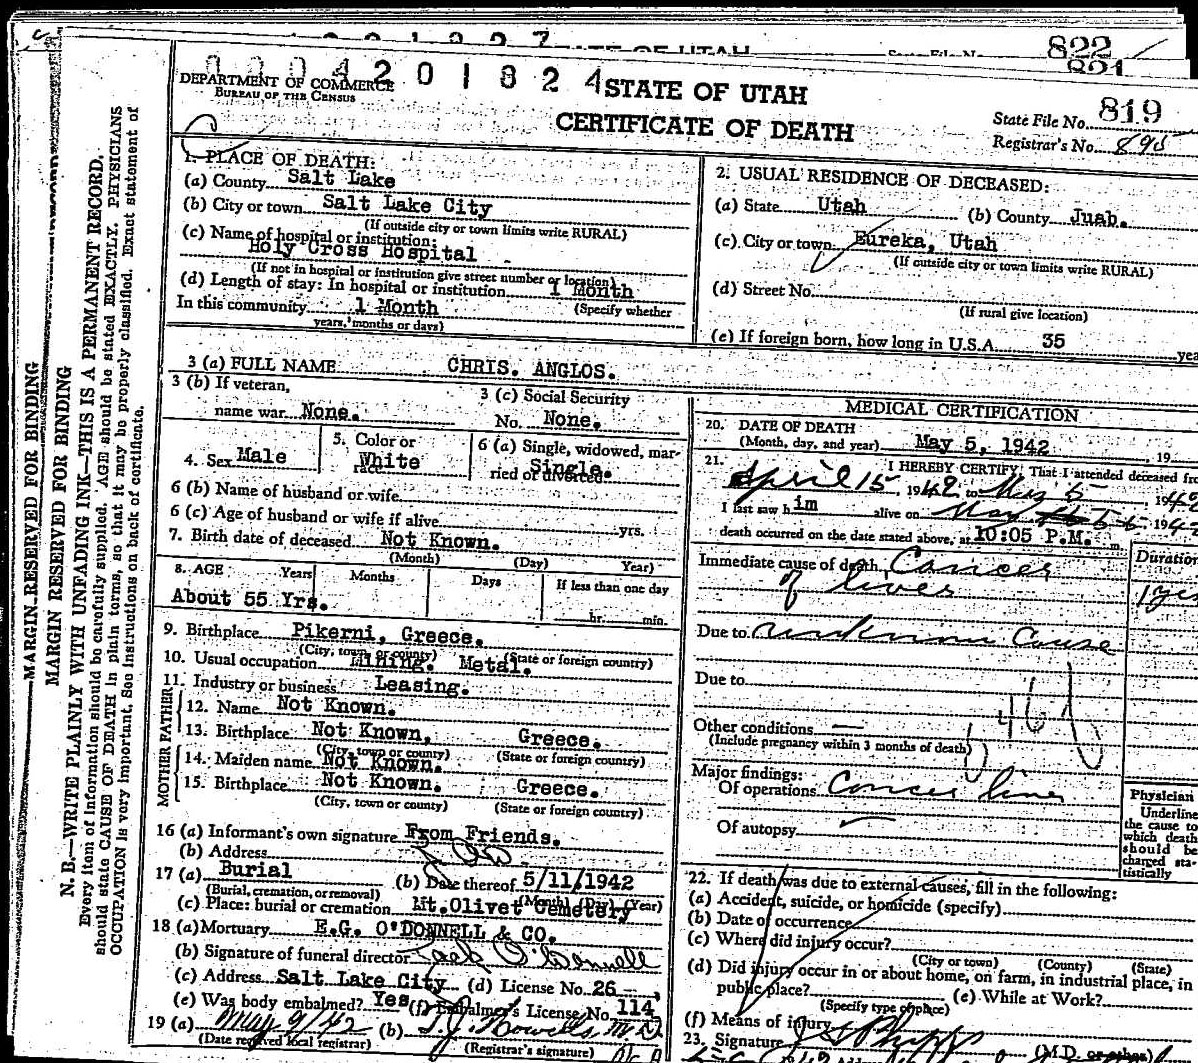 822
821
0 0 0 4 2 0 1 8 2 4
DEPARTMENT OF COMMERCE
BUREAU OF THE CENSUS
STATE OF UTAH
CERTIFICATE OF DEATH
State File No. 819
Registrar's No. 895
1. PLACE OF DEATH:
(a) County Salt Lake
(b) City or town Salt Lake City
(If outside city or town limits write RURAL)
(c) Name of hospital or institution:
Holy Cross Hospital
(If not in hospital or institution give street number or location)
(d) Length of stay: In hospital or institution 1 Month
In this community 1 Month (Specify whether
years, months or days)
2. USUAL RESIDENCE OF DECEASED:
(a) State Utah (b) County Juab.
(c) City or town Eureka, Utah
(If outside city or town limits write RURAL)
(d) Street No.
(If rural give location)
(e) If foreign born, how long in U.S.A. 35 yea
3 (a) FULL NAME CHRIS. ANGLOS.
3 (b) If veteran,
name war None.
3 (c) Social Security
No. None.
4. Sex Male
5. Color or
race White
6 (a) Single, widowed, mar-
ried or divorced Single.
6 (b) Name of husband or wife
6 (c) Age of husband or wife if alive yrs.
7. Birth date of deceased Not Known.
(Month) (Day) Year)
8. AGE Years Months Days If less than one day
About 55 Yrs. hr. min.
9. Birthplace Pikerni, Greece.
(City, town or county) (State or foreign country)
10. Usual occupation Mining. Metal.
11. Industry or business Leasing.
FATHER
12. Name Not Known.
13. Birthplace Not Known, Greece.
(City, town or county) (State or foreign country)
MOTHER
14. Maiden name Not Known.
15. Birthplace Not Known. Greece.
(City, town or county) (State or foreign country)
16 (a) Informant's own signature From Friends.
(b) Address
17 (a) Burial (b) Date thereof 5/11/1942
(Burial, cremation, or removal) (Month) (Day) (Year)
(c) Place: burial or cremation Mt. Olivet Cemetery
18 (a) Mortuary E.G. O'DONNELL & CO.
(b) Signature of funeral director Jack O'Donnell
(c) Address Salt Lake City (d) License No. 26
(e) Was body embalmed? Yes (f) Embalmer's License No. 114
19 (a) May 9/42 (b) T.J. Howells M.D.
(Date received local registrar) (Registrar's signature)
MEDICAL CERTIFICATION
20. DATE OF DEATH
(Month, day, and year) May 5, 1942 19
21. I HEREBY CERTIFY, That I attended deceased fro
April 15, 1942 to May 5 1942
I last saw him alive on May 194
death occurred on the date stated above, at 10:05 P.M. m.
Immediate cause of death Cancer
of liver
Duration
1 yes
Due to unknown cause
Due to
46
Other conditions
(Include pregnancy within 3 months of death)
Major findings:
Of operations Cancer liver
Of autopsy
Physician
Underline
the cause to
which death
should be
charged sta-
tistically
22. If death was due to external causes, fill in the following:
(a) Accident, suicide, or homicide (specify)
(b) Date of occurrence
(c) Where did injury occur?
(City or town) (County) (State)
(d) Did injury occur in or about home, on farm, in industrial place, in
public place?
(Specify type of place) (e) While at Work?
(f) Means of injury
23. Signature
(M.D. or other)
MARGIN RESERVED FOR BINDING
MARGIN RESERVED FOR BINDING
N. B.—WRITE PLAINLY WITH UNFADING INK—THIS IS A PERMANENT RECORD.
Every item of information should be carefully supplied. AGE should be stated EXACTLY. PHYSICIANS
should state CAUSE OF DEATH in plain terms, so that it may be properly classified. Exact statement of
OCCUPATION is very important. See instructions on back of certificate.